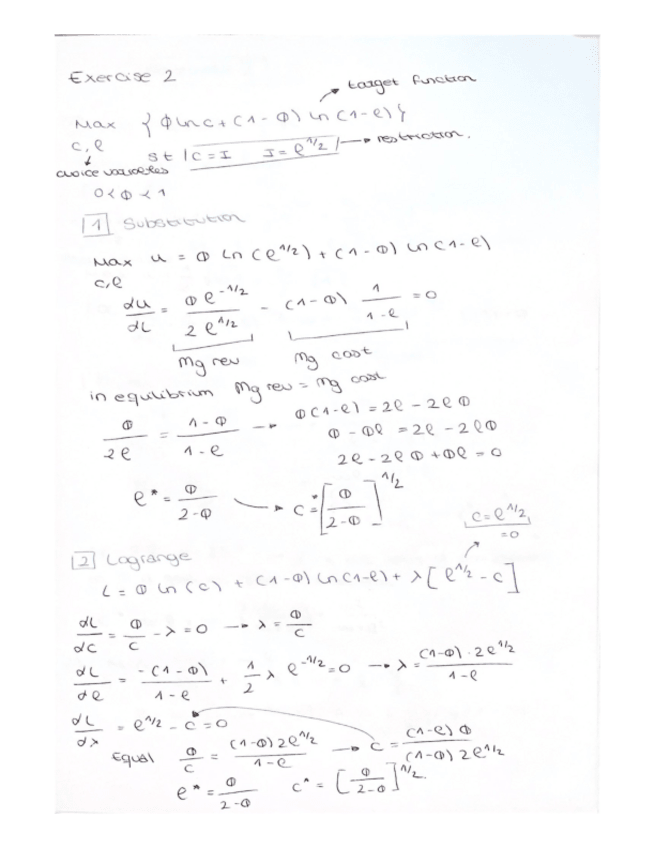 Exercise 2
target function
Max { Φ ln c + (1 - Φ) ln (1 - e) }
c, e
st | c = I    I = e^1/2 | → restriction.
choice variables
0 < Φ < 1
1 Substitution
Max u = Φ ln (e^1/2) + (1 - Φ) ln (1 - e)
c, e
du/dL = Φ e^-1/2 / 2 e^1/2 - (1 - Φ) 1/1-e = 0
Mg rev    Mg cost
in equlibrium Mg rev = Mg cost
Φ/2e = 1-Φ/1-e → Φ(1-e) = 2e - 2eΦ
Φ - Φe = 2e - 2eΦ
2e - 2eΦ + Φe = 0
e* = Φ/2-Φ → c* = [Φ/2-Φ]^1/2
c = e^1/2
=0
2 Lagrange
L = Φ ln (c) + (1-Φ) ln (1-e) + λ [e^1/2 - c]
dL/dc = Φ/c - λ = 0 → λ = Φ/c
dL/de = -(1-Φ)/1-e + 1/2 λ e^-1/2 = 0 → λ = (1-Φ) · 2e^1/2/1-e
dL/dλ = e^1/2 - c = 0
Equal Φ/c = (1-Φ) 2e^1/2/1-e → c = (1-e) Φ/(1-Φ) 2e^1/2
e* = Φ/2-Φ    c* = [Φ/2-Φ]^1/2.